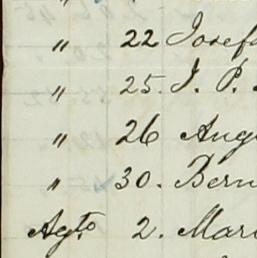 " 22 Josef
" 25. J. P.
" 26 Aug
" 30. Bern
Agto 2. Mari